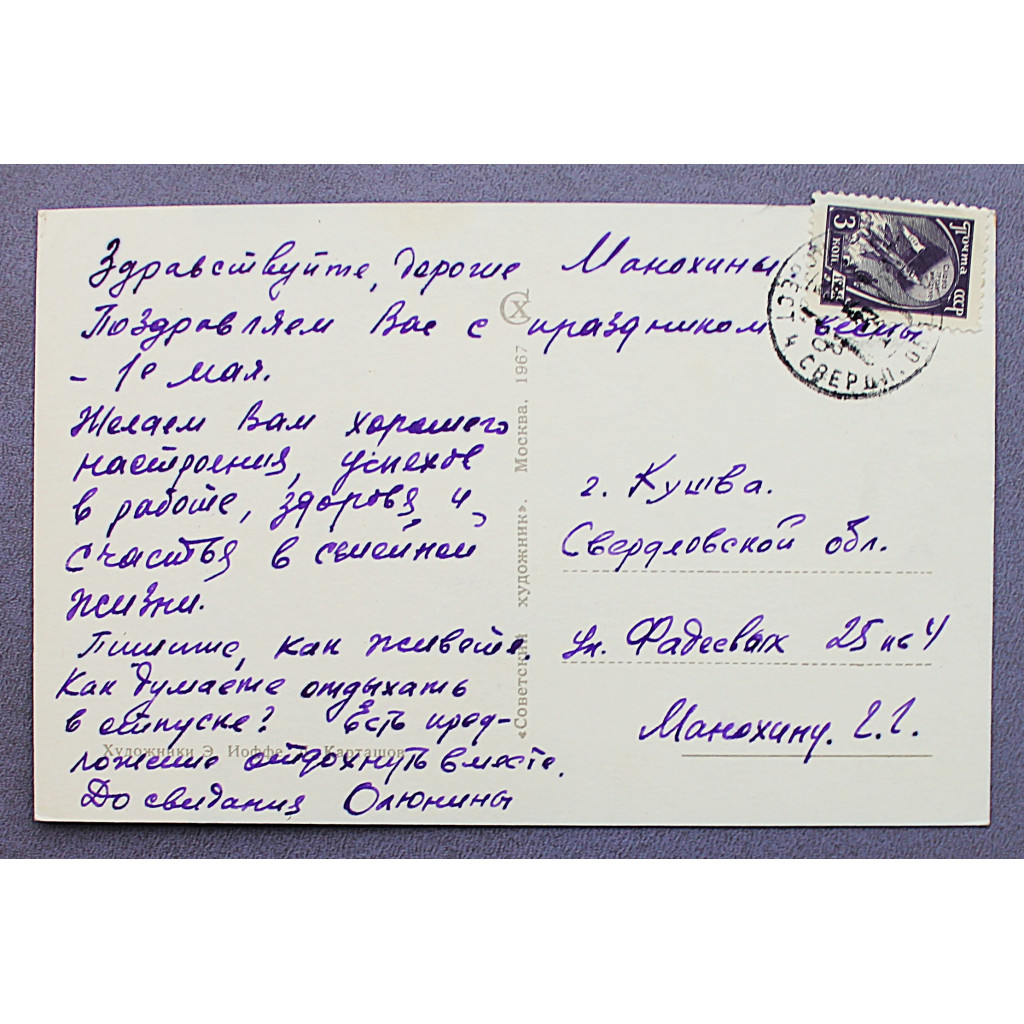 Здравствуйте, дорогие Манохины
Поздравляем Вас с праздником весны
- 1е мая.
Желаем Вам хорошего
настроения, успехов
в работе, здоровья и
счастья в семейной
жизни.
Пишите, как живёте.
Как думаете отдыхать
в отпуске? Есть пред-
ложение отдохнуть вместе.
До свидания Олюнины
Художники Э. Иоффе, Карташов
«Советский художник». Москва, 1967
Почта СССР
3 коп
СВЕРДЛ. ОБ
г. Кушва.
Свердловской обл.
ул. Фадеевых 25 кв 4
Манохину. Г. Г.